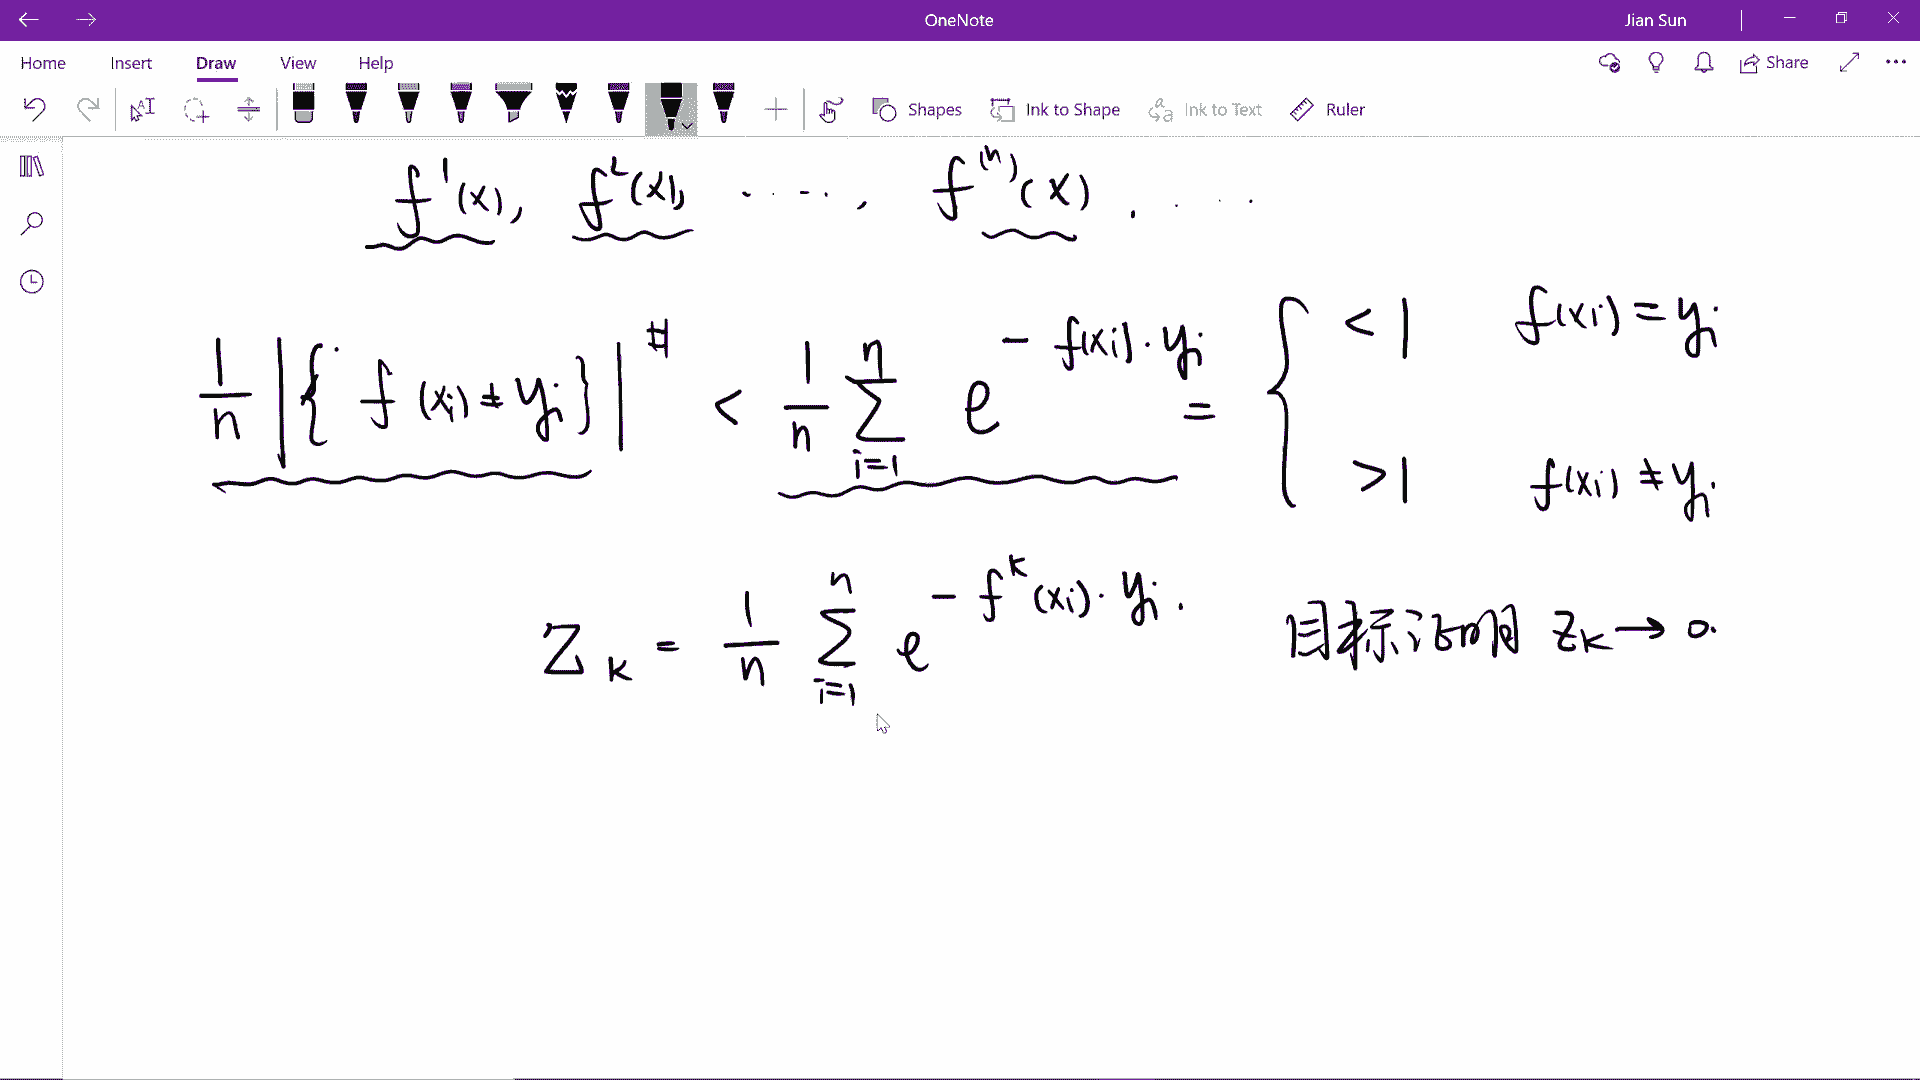 OneNote
Jian Sun
Home Insert Draw View Help
Share
Shapes Ink to Shape Ink to Text Ruler
f¹(x), f²(x), ·····, f⁽ⁿ⁾(x). ····
1/n |{f(xi) ≠ yi}|^# < 1/n ∑_{i=1}^{n} e^{-f(xi)·yi} = { < 1 f(xi) = yi
> 1 f(xi) ≠ yi
Z_k = 1/n ∑_{i=1}^{n} e^{-f^k(xi)·yi}. 目标证明 Z_k → 0.